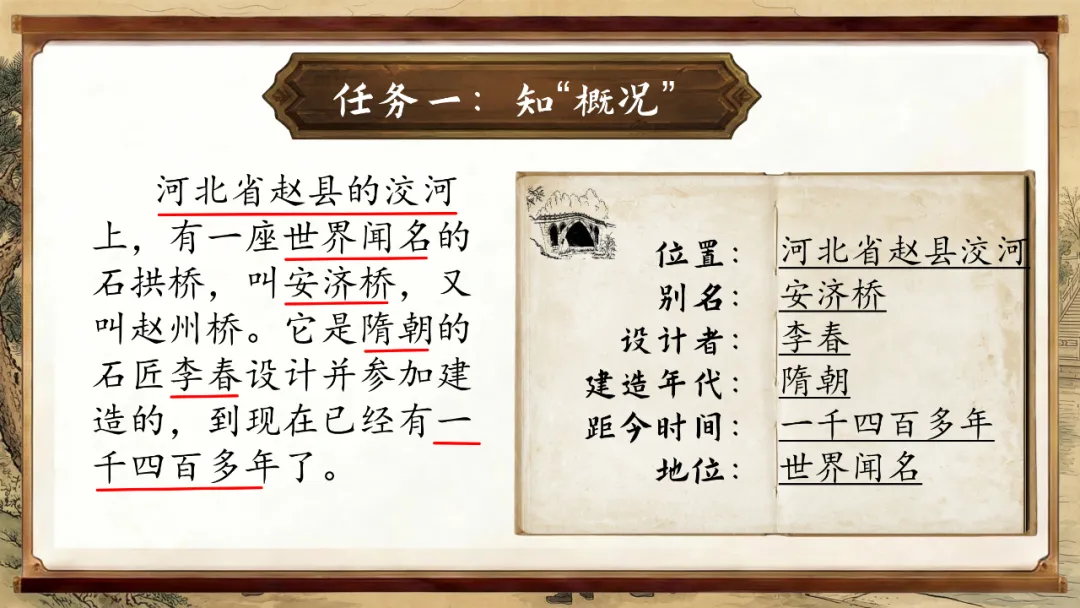 任务一：知“概况”
河北省赵县的洨河
上，有一座世界闻名的
石拱桥，叫安济桥，又
叫赵州桥。它是隋朝的
石匠李春设计并参加建
造的，到现在已经有一
千四百多年了。
位置：河北省赵县洨河
别名：安济桥
设计者：李春
建造年代：隋朝
距今时间：一千四百多年
地位：世界闻名